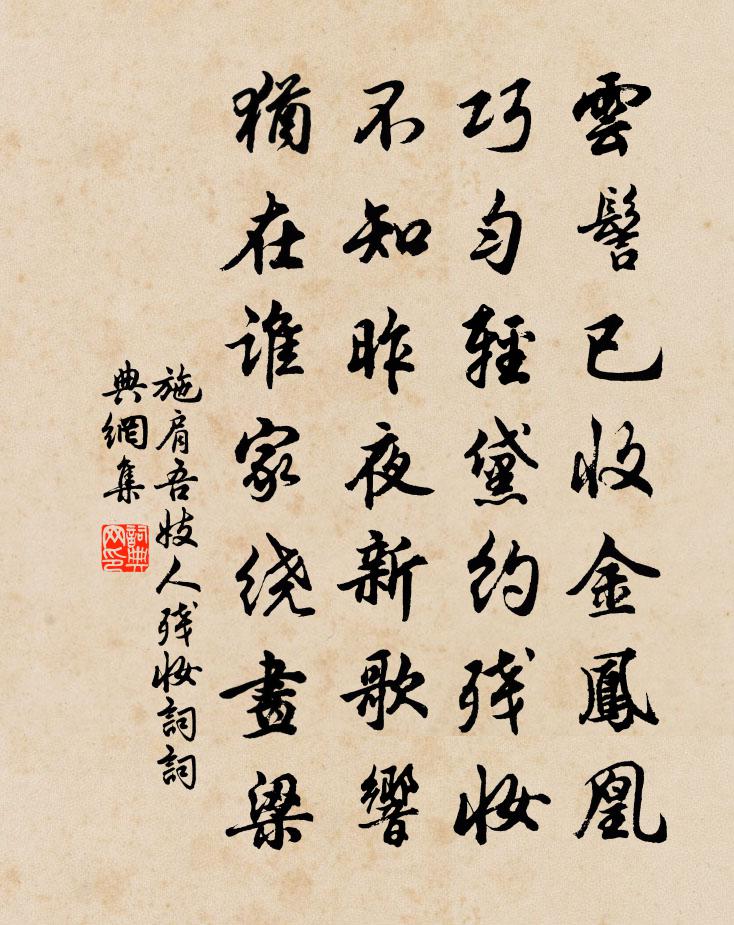 雲髻已收金鳳凰
巧勻輕黛約残妝
不知昨夜新歌響
猶在誰家绕畫梁
施肩吾妓人残妝詞詞
典網集
詞典
网印